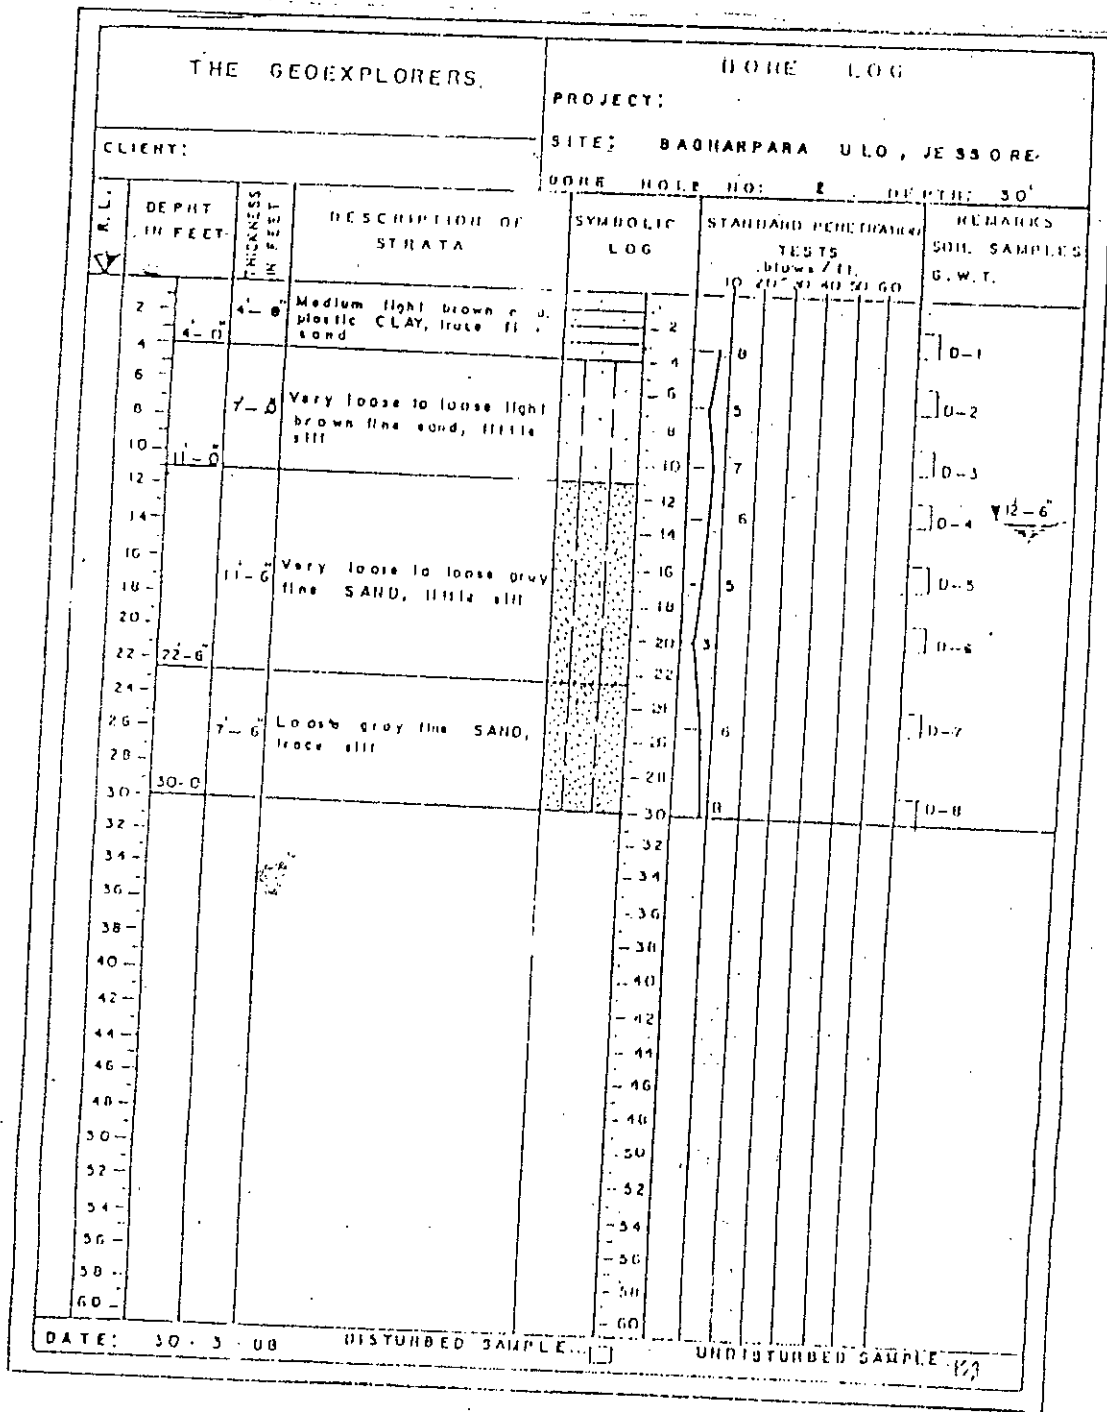 THE GEOEXPLORERS.
BORE LOG
PROJECT:
CLIENT:
SITE: BAGHARPARA ULO, JESSORE.
BORE HOLE NO: DEPTH: 30'
R.L.
DEPHT IN FEET
THICKNESS IN FEET
DESCRIPTION OF STRATA
SYMBOLIC LOG
STANDARD PENETRATION TESTS
blows / ft.
10 20 30 40 50 60
REMARKS
SOIL SAMPLES
G.W.T.
4'-0" 4'-0" Medium light brown
plastic CLAY, trace
sand
8 D-1
7'-0" Very loose to loose light
brown fine sand, little
silt
5 D-2
11'-0" 7 D-3
6 D-4 12'-6"
11'-6" Very loose to loose gray
fine SAND, little silt
5 D-5
3 D-6
22'-6"
7'-6" Loose gray fine SAND,
trace silt
6 D-7
30-0 8 D-8
2 4 6 8 10 12 14 16 18 20 22 24 26 28 30 32 34 36 38 40 42 44 46 48 50 52 54 56 58 60
2 4 6 8 10 12 14 16 18 20 22 26 28 30 32 34 36 38 40 42 44 46 48 50 52 54 56 58 60
DATE: 30-3-88 DISTURBED SAMPLE UNDISTURBED SAMPLE